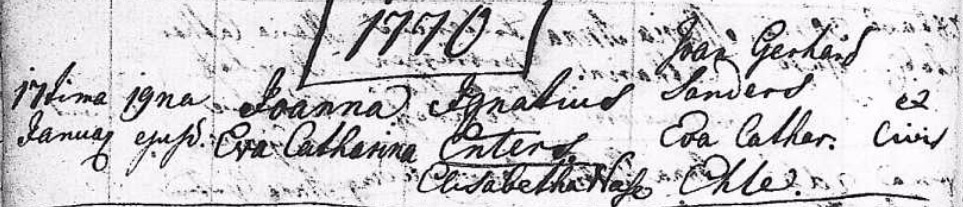 1770
Joan Gerhard
17tima 19na Joanna Ignatius Sanders ex
Januar ejusd. Eva Catharina Enters Eva Cathar. Civit
Elisabetha Hass Ohle.